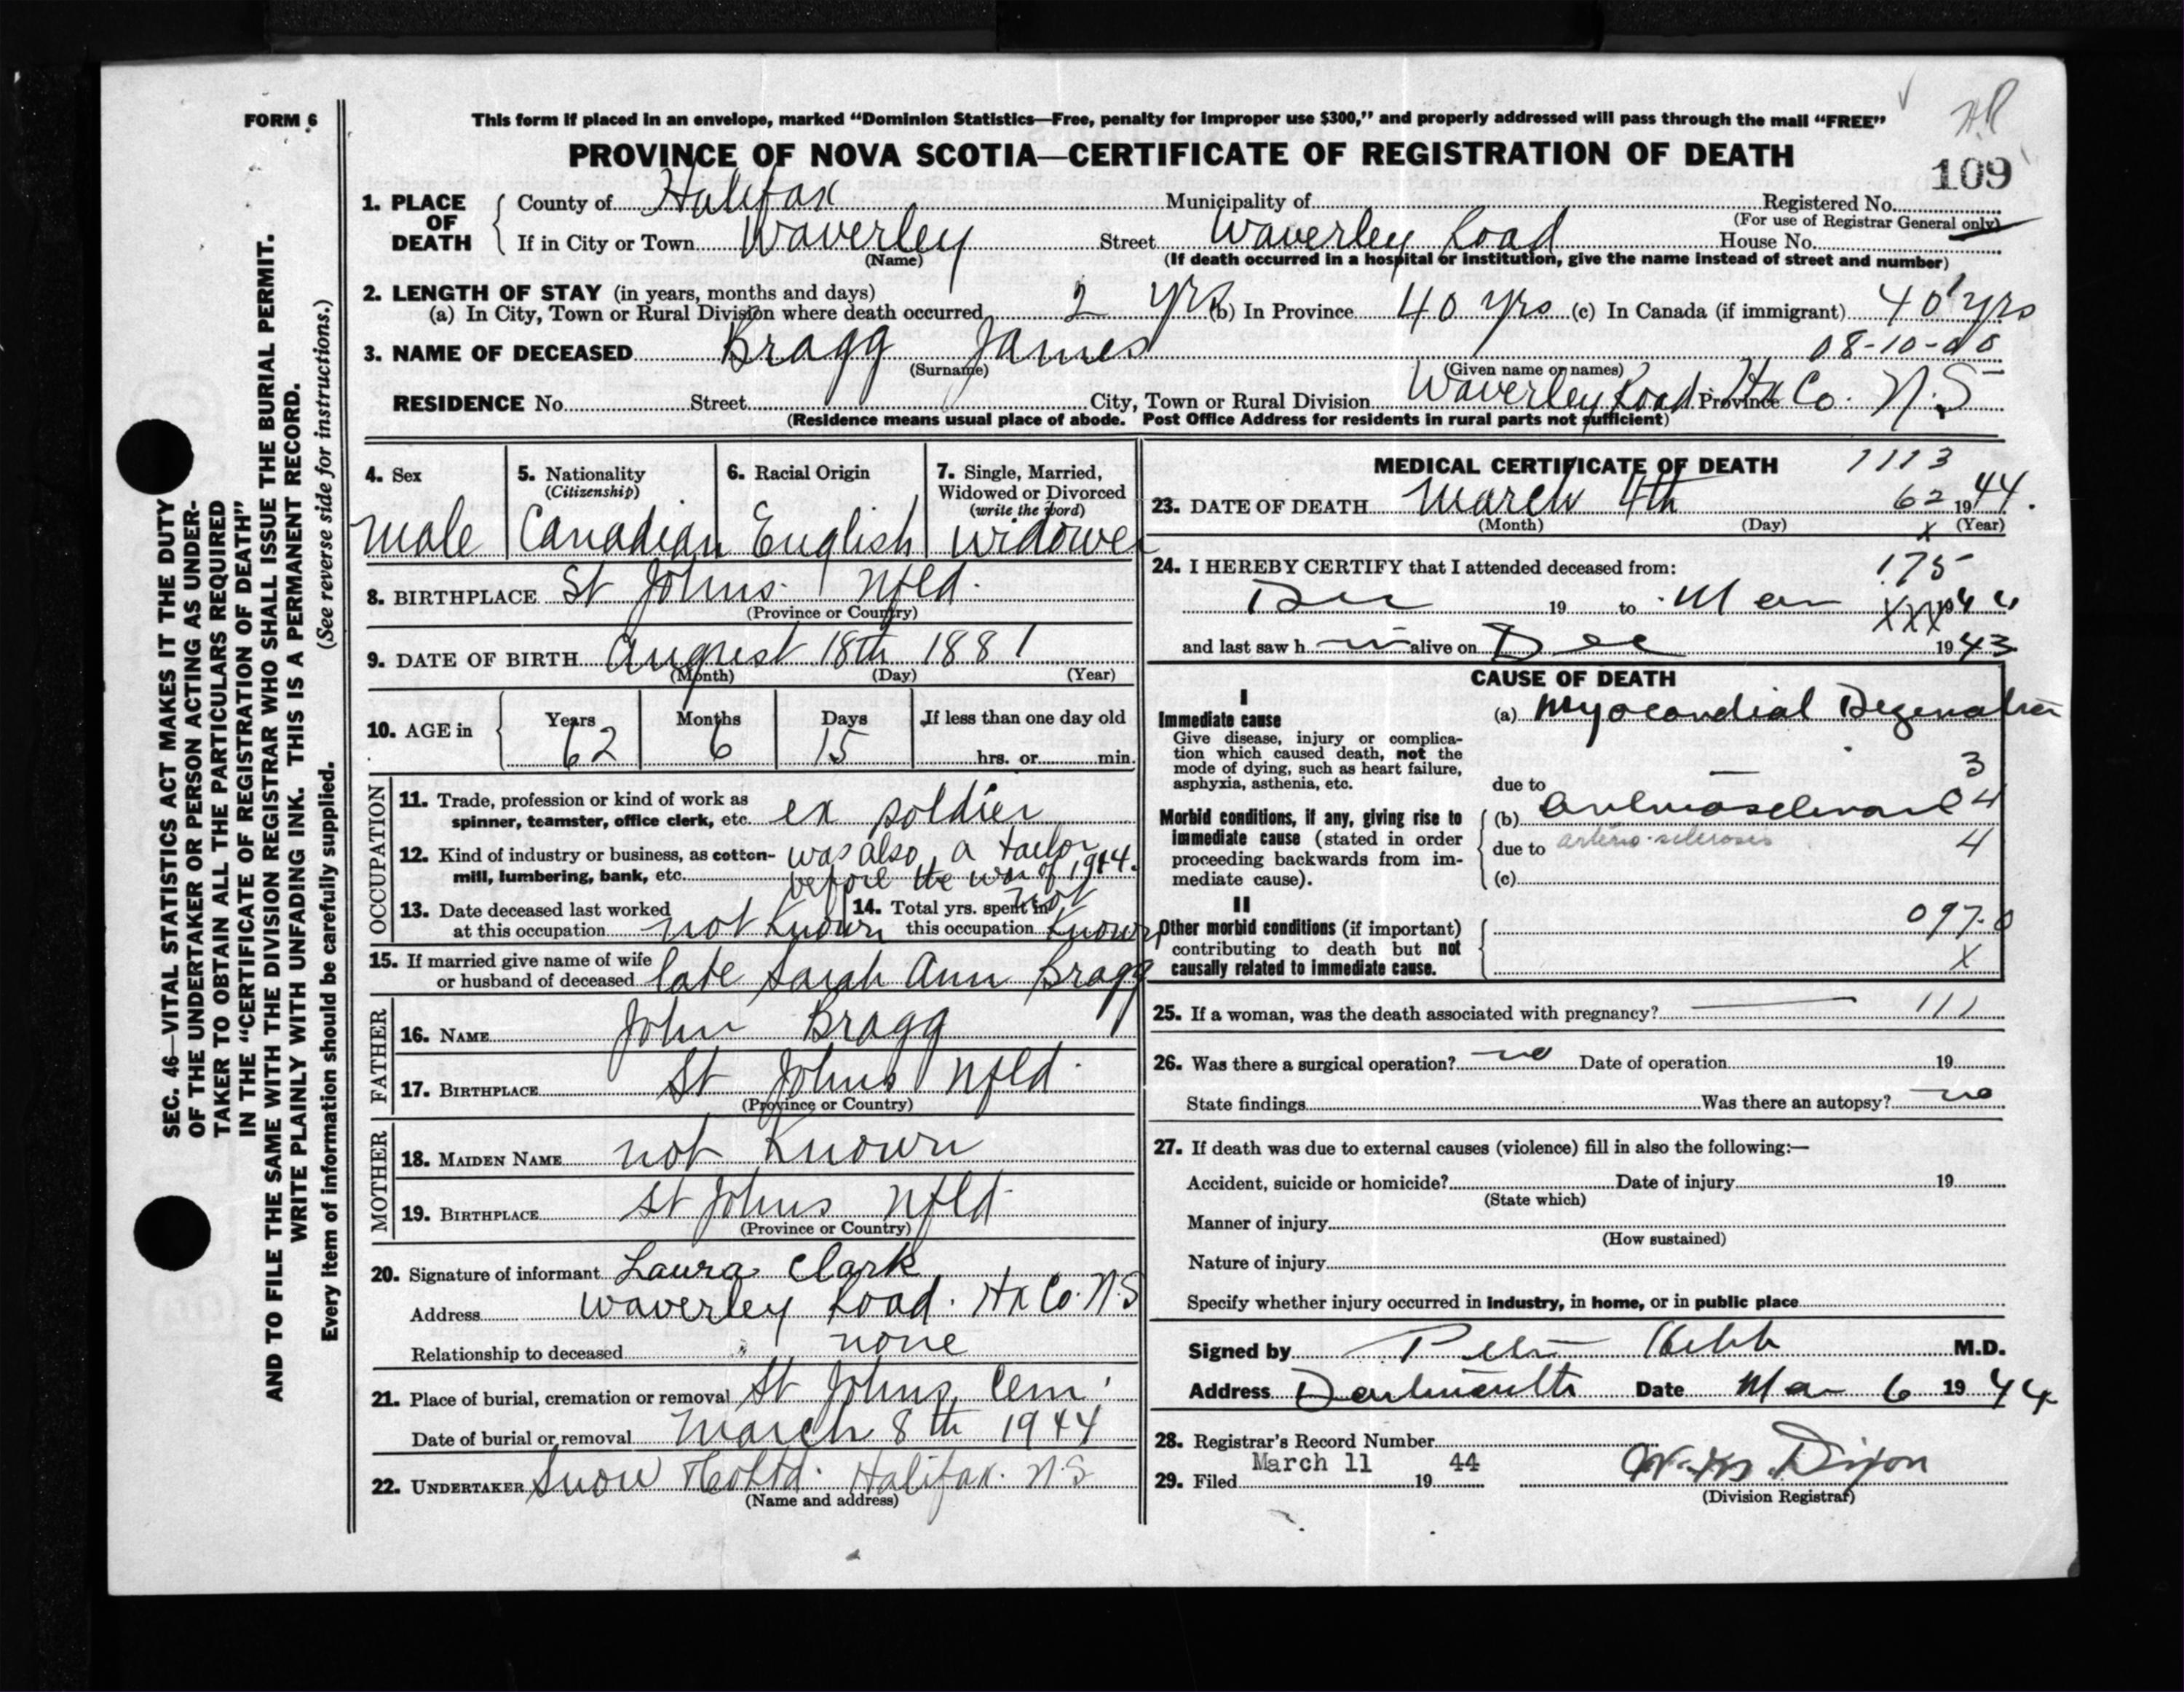 FORM 6
This form if placed in an envelope, marked "Dominion Statistics—Free, penalty for improper use $300," and properly addressed will pass through the mail "FREE"
PROVINCE OF NOVA SCOTIA—CERTIFICATE OF REGISTRATION OF DEATH
109
1. PLACE OF DEATH
County of Halifax Municipality of Registered No.
(For use of Registrar General only)
If in City or Town Waverley Street Waverley Road House No.
(Name) (If death occurred in a hospital or institution, give the name instead of street and number)
2. LENGTH OF STAY (in years, months and days)
(a) In City, Town or Rural Division where death occurred 2 yrs (b) In Province 40 yrs (c) In Canada (if immigrant) 40 yrs
3. NAME OF DECEASED Bragg James 08-10-00
(Surname) (Given name or names)
RESIDENCE No. Street City, Town or Rural Division Waverley Road Province Hx Co. N.S
(Residence means usual place of abode. Post Office Address for residents in rural parts not sufficient)
4. Sex
male
5. Nationality
(Citizenship)
Canadian
6. Racial Origin
English
7. Single, Married, Widowed or Divorced
(write the word)
widower
8. BIRTHPLACE St Johns Nfld.
(Province or Country)
9. DATE OF BIRTH August 18th 1881
(Month) (Day) (Year)
10. AGE in Years Months Days If less than one day old
62 6 15 hrs. or min.
OCCUPATION
11. Trade, profession or kind of work as
spinner, teamster, office clerk, etc. ex soldier
12. Kind of industry or business, as cotton-mill, lumbering, bank, etc. was also a tailor
before the war of 1914.
13. Date deceased last worked
at this occupation not Known
14. Total yrs. spent in
this occupation not Known
15. If married give name of wife
or husband of deceased late Sarah Ann Bragg
FATHER
16. NAME John Bragg
17. BIRTHPLACE St Johns Nfld.
(Province or Country)
MOTHER
18. MAIDEN NAME not Known
19. BIRTHPLACE St Johns Nfld.
(Province or Country)
20. Signature of informant Laura Clark
Address Waverley Road. Hx Co. N.S
Relationship to deceased none
21. Place of burial, cremation or removal St Johns Cem.
Date of burial or removal March 8th 1944
22. UNDERTAKER Snow & Co Ltd. Halifax. N.S
(Name and address)
MEDICAL CERTIFICATE OF DEATH 1113
23. DATE OF DEATH March 4th 62 1944.
(Month) (Day) x (Year)
24. I HEREBY CERTIFY that I attended deceased from: 175
Dec 19 to Mar XXX 1944
and last saw h im alive on Dec 1943
CAUSE OF DEATH
I
Immediate cause
Give disease, injury or complication which caused death, not the mode of dying, such as heart failure, asphyxia, asthenia, etc.
(a) Myocardial Degeneration
due to 3
Morbid conditions, if any, giving rise to immediate cause (stated in order proceeding backwards from immediate cause).
(b) 4
due to arterio-sclerosis 4
(c)
II
Other morbid conditions (if important) contributing to death but not causally related to immediate cause.
097.0
X
25. If a woman, was the death associated with pregnancy? 111
26. Was there a surgical operation? no Date of operation 19
State findings Was there an autopsy? no
27. If death was due to external causes (violence) fill in also the following:—
Accident, suicide or homicide? Date of injury 19
(State which)
Manner of injury
(How sustained)
Nature of injury
Specify whether injury occurred in industry, in home, or in public place
Signed by Hebb M.D.
Address Dartmouth Date Mar 6 1944
28. Registrar's Record Number
29. Filed March 11 19 44 Dixon
(Division Registrar)
SEC. 46—VITAL STATISTICS ACT MAKES IT THE DUTY
OF THE UNDERTAKER OR PERSON ACTING AS UNDER-
TAKER TO OBTAIN ALL THE PARTICULARS REQUIRED
IN THE "CERTIFICATE OF REGISTRATION OF DEATH"
AND TO FILE THE SAME WITH THE DIVISION REGISTRAR WHO SHALL ISSUE THE BURIAL PERMIT.
WRITE PLAINLY WITH UNFADING INK. THIS IS A PERMANENT RECORD.
Every item of information should be carefully supplied. (See reverse side for instructions.)